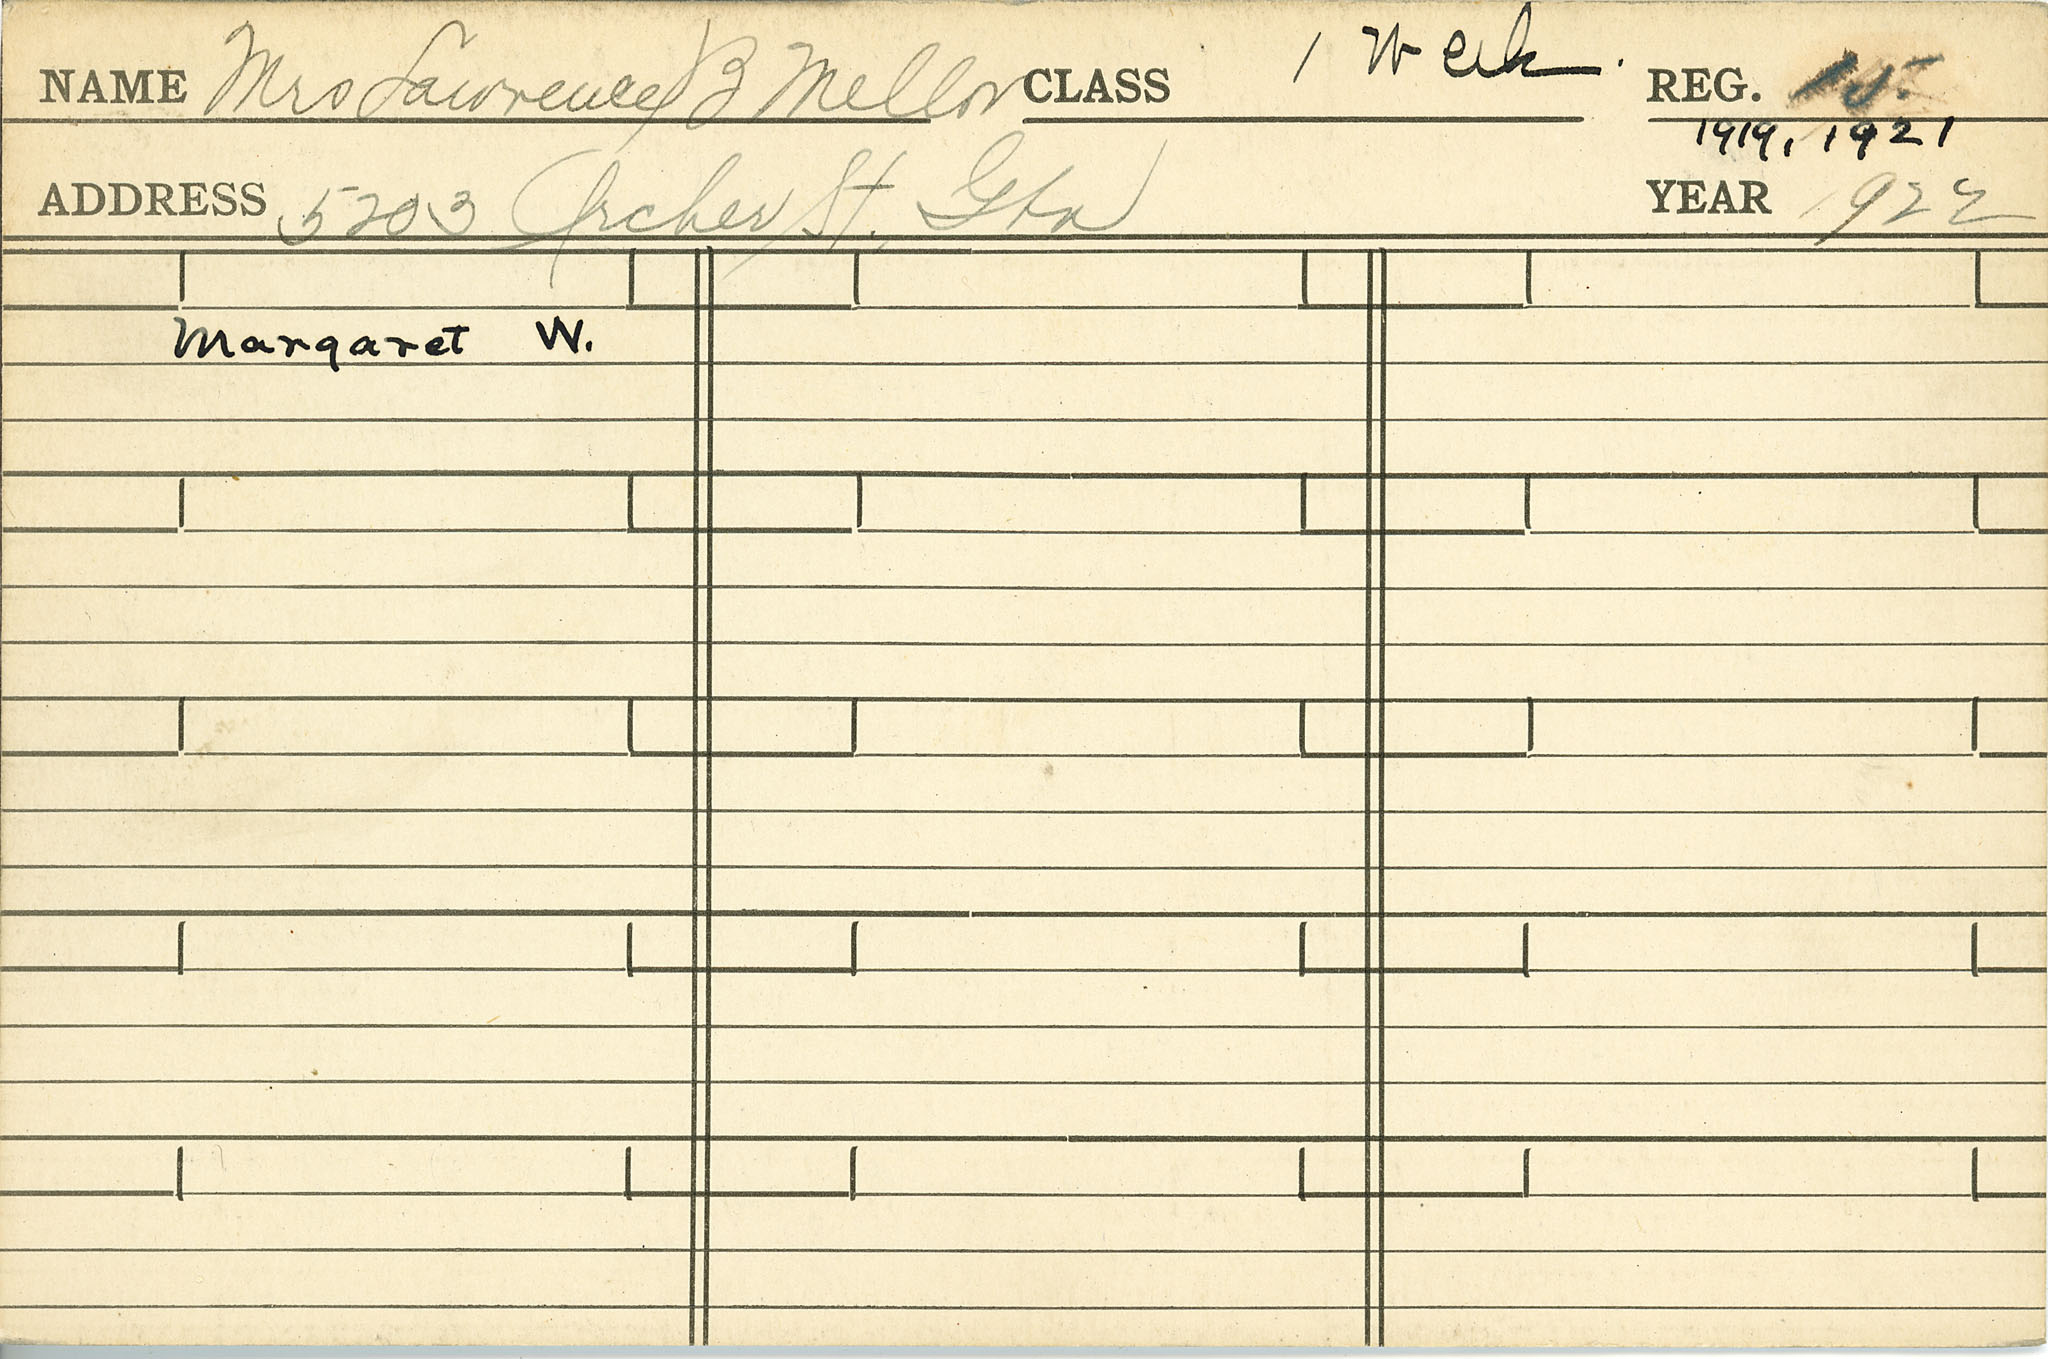 NAME Mrs Lawrence B Mellor CLASS 1 Week. REG. 15.
1919, 1921
ADDRESS 5203 Archer St. Gtn YEAR 1922
Margaret W.